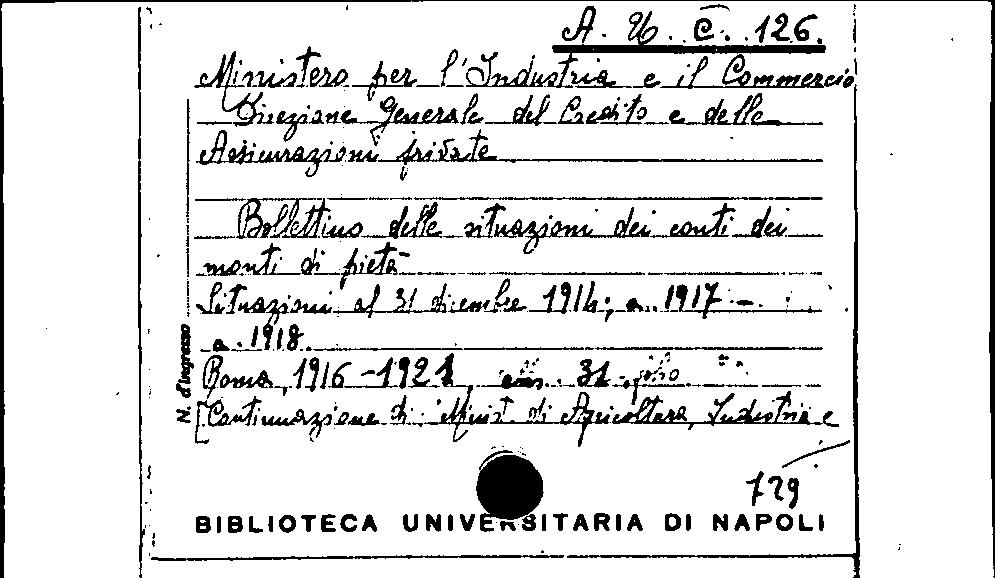 A. U. C. 126.
Ministero per l'Industria e il Commercio
Direzione Generale del Credito e delle
Assicurazioni private
Bollettino delle situazioni dei conti dei
monti di pietà
Situazioni al 31 dicembre 1914; a. 1917 -
a. 1918.
Roma, 1916-1921, cm. 31.
[Continuazione di: Minist. di Agricoltura, Industria e
729
N. d'ingresso
BIBLIOTECA UNIVERSITARIA DI NAPOLI